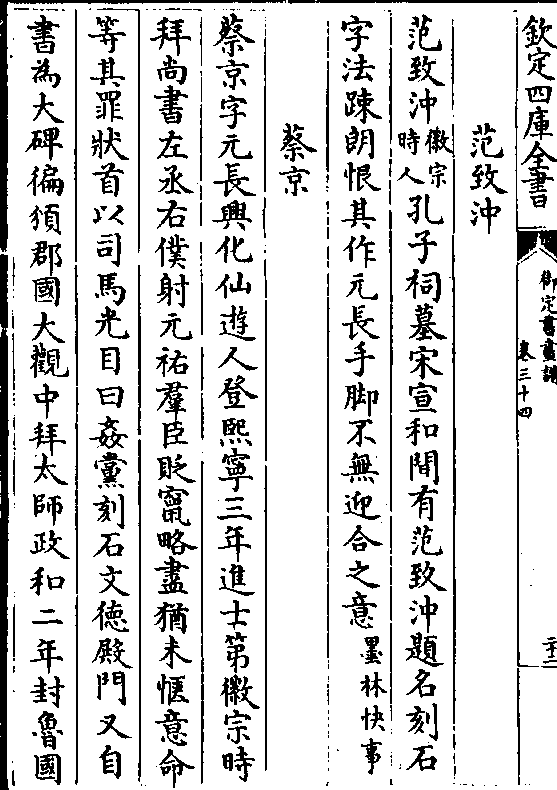 欽定四庫全書
御定書畫譜
卷三十四
范致沖
范致沖徽宗時人孔子祠墓宋宣和間有范致沖題名刻石
字法踈朗恨其作元長手脚不無迎合之意墨林快事
蔡京
蔡京字元長興化仙遊人登熙寧三年進士第徽宗時
拜尚書左丞右僕射元祐羣臣貶竄略盡猶未愜意命
等其罪狀首以司馬光目曰姦黨刻石文德殿門又自
書為大碑徧頒郡國大觀中拜太師政和二年封魯國